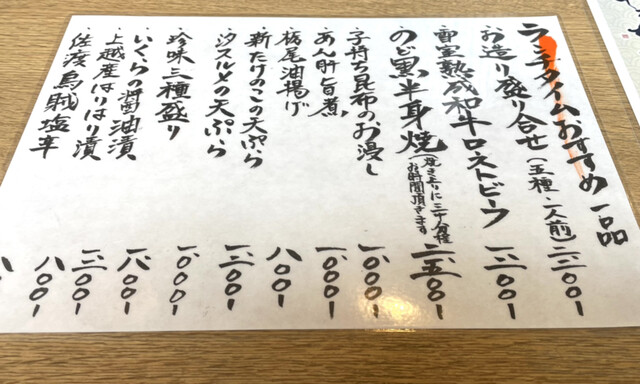 ランチタイムおすすめ一品
お造り盛り合せ(五種・一人前)二、二〇〇ー
雪室熟成和牛ローストビーフ
のど黒半身焼(焼き上りに二十分程お時間頂きます)二、五〇〇ー
・子持ち昆布のお浸し 一、〇〇〇ー
・あん肝旨煮 一、〇〇〇ー
・栃尾油揚げ 八〇〇ー
・新たけのこの天ぷら
・シズルその天ぷら
・珍味三種盛り 一、〇〇〇ー
・いくらの醤油漬
・上越産はりはり漬
・佐渡烏賊塩辛